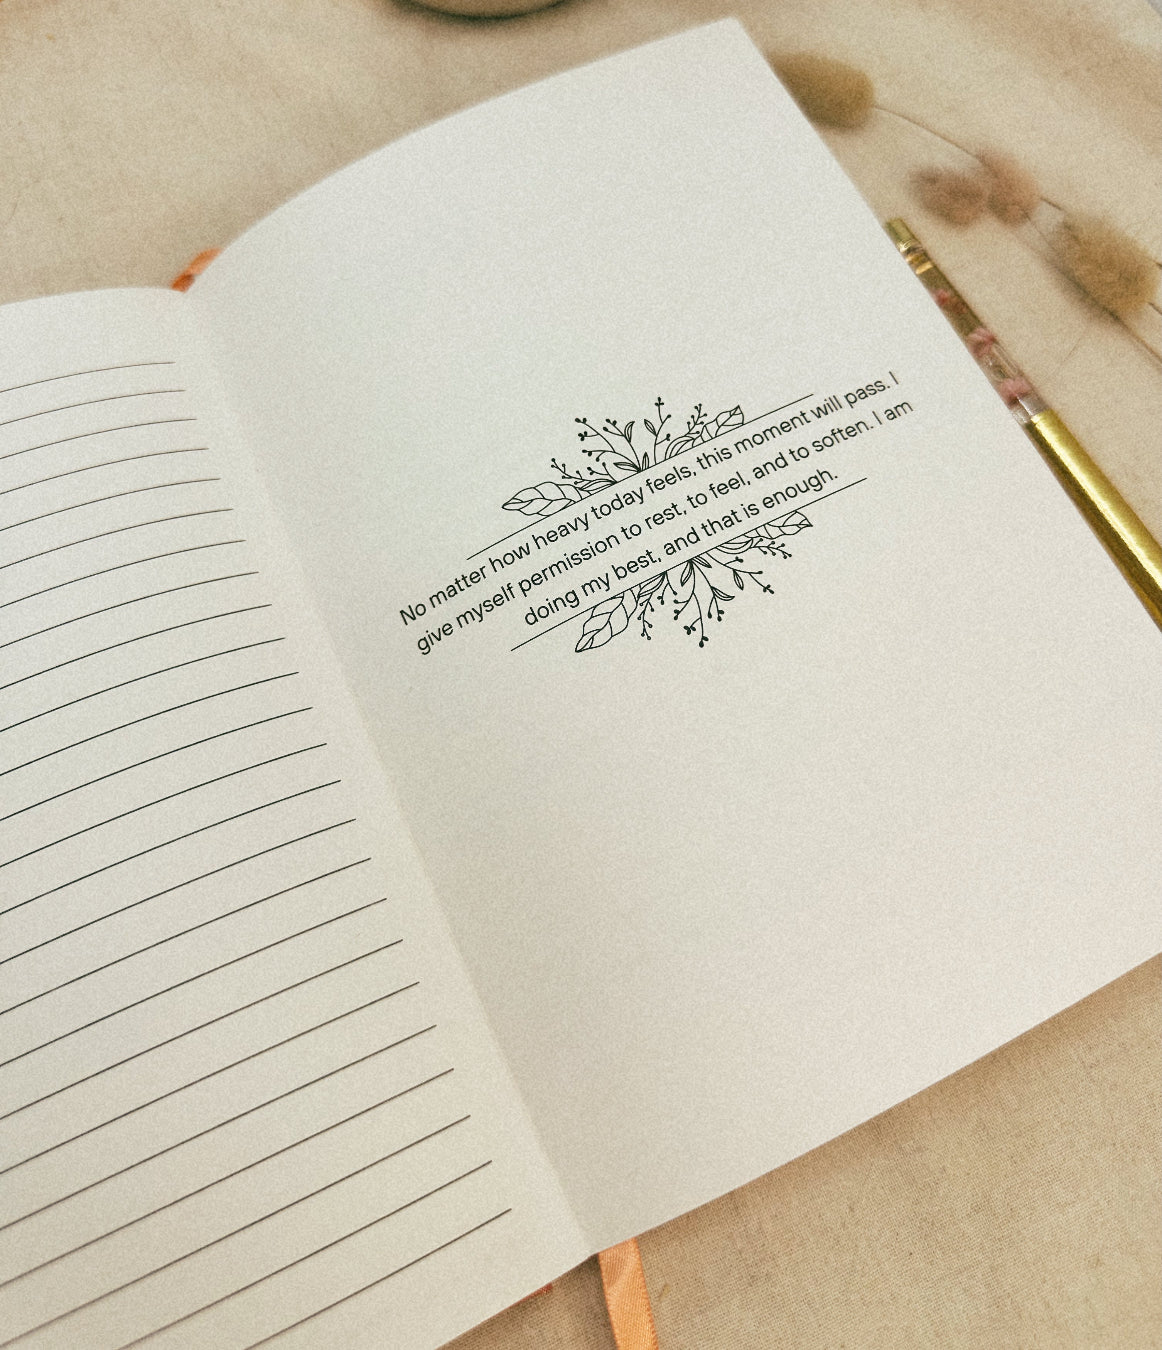 No matter how heavy today feels, this moment will pass. I
give myself permission to rest, to feel, and to soften. I am
doing my best, and that is enough.